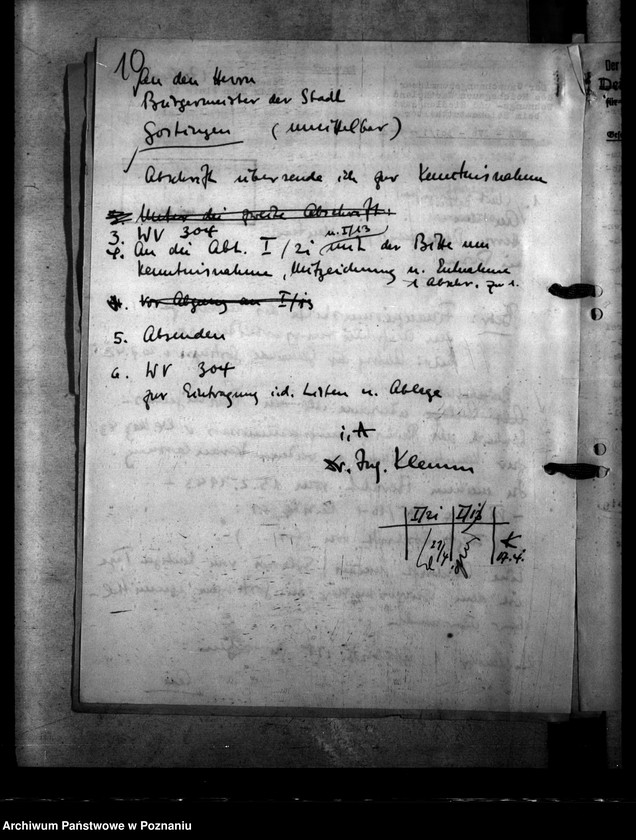 10
An den Herrn
Bürgermeister der Stadt
Gostingen (unmittelbar)
Abschrift übersende ich zur Kenntnisnahme
2. Unter die zweite Abschrift:
3. WV 304
u. I/13
4. An die Abt. I/2i mit der Bitte um
Kenntnisnahme, Mitzeichnung u. Entnahme
1 Abschr. zu 1.
4. vor Abgang an I/
5. Absenden
6. WV 304
zur Eintragung i.d. Listen u. Ablage
i. A
Dr. Ing. Klemm
I/2i I/
21/4
K
17.4.
Der
Archiwum Państwowe w Poznaniu